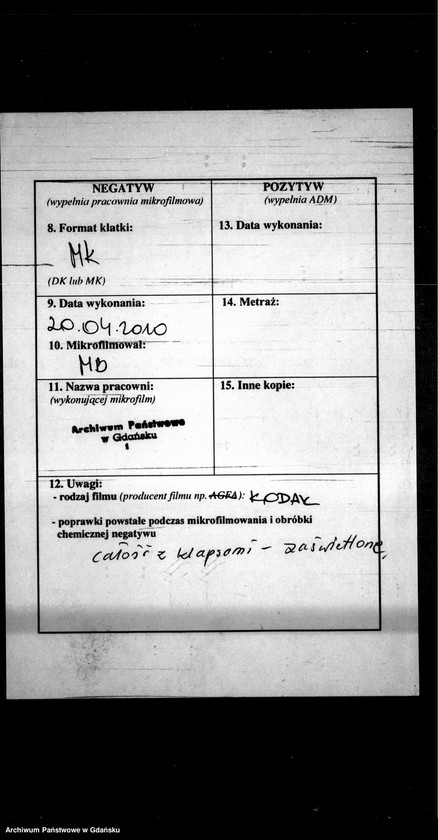 NEGATYW
(wypełnia pracownia mikrofilmowa)
8. Format klatki:
MK
(DK lub MK)
9. Data wykonania:
20.04.2010
10. Mikrofilmował:
MD
11. Nazwa pracowni:
(wykonującej mikrofilm)
Archiwum Państwowe
w Gdańsku
1
POZYTYW
(wypełnia ADM)
13. Data wykonania:
14. Metraż:
15. Inne kopie:
12. Uwagi:
- rodzaj filmu (producent filmu np. AGFA): KODAK
- poprawki powstałe podczas mikrofilmowania i obróbki
chemicznej negatywu
całość z klapsami - zaświetlone
Archiwum Państwowe w Gdańsku